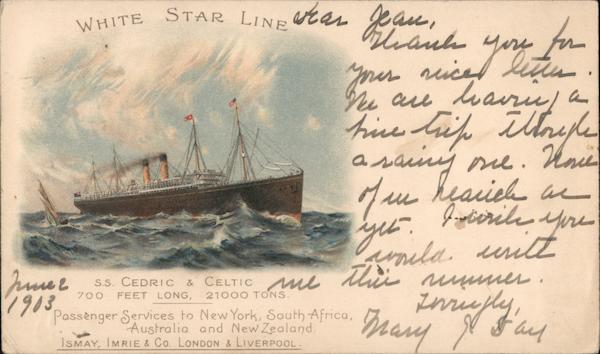 WHITE STAR LINE
Dear Jean,
Thank you for
your nice letter.
We are having a
fine trip though
a rainy one. None
of us seasick as
yet. I wish you
would write
me this summer.
Lovingly,
Mary J. Day
June 2
1903
S.S. CEDRIC & CELTIC
700 FEET LONG, 21000 TONS.
Passenger Services to New York, South Africa,
Australia and New Zealand.
ISMAY, IMRIE & Co. LONDON & LIVERPOOL.